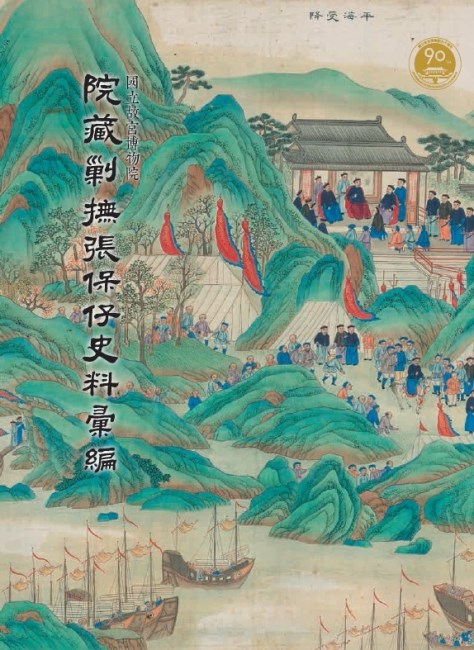 平海受降
90
國立故宮博物院
院藏剿撫張保仔史料彙編